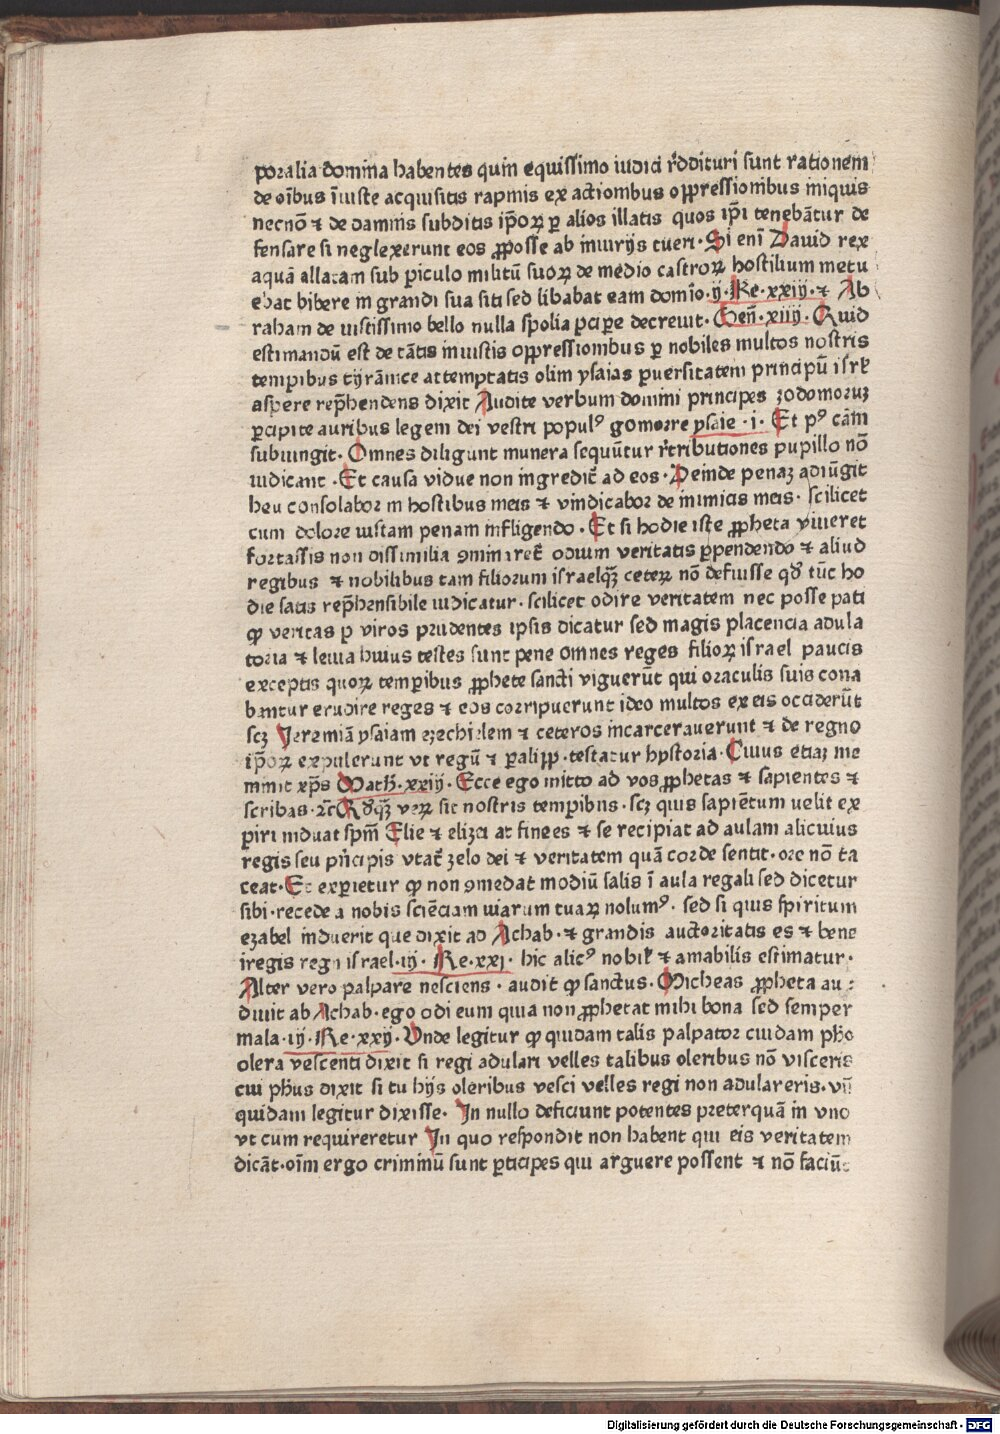 poralia domina habentes quin equissimo iudici rͤddituri sunt rationem
de oĩbus ĩuiste acquisitis rapinis ex actionibus oppressionibus iniquis
necnõ ⁊ de damnis subditis ip̃oꝝ ꝑ alios illatis quos ip̃i tenebãtur de
fensare si neglexerunt eos ꝓposse ab iniurijs tueri · Si enĩ Dauid rex
aquã allatam sub ꝑiculo militũ suoꝝ de medio castroꝝ hostilium metu
ebat bibere in grandi sua siti sed libabat eam domĩo · ij · Re · xxiij · ⁊ Ab
raham de iustissimo bello nulla spolia ꝑciꝑe decreuit · Geñ · xiiij · Quid
estimandũ est de tãtis iniustis oppressionibus ꝑ nobiles multos nostris
temꝑibus tyrãnice attemptatis olim ysaias ꝑuersitatem principũ isrł
aspere rep̃hendens dixit Audite verbum domini principes zodomoruz
ꝑcipite auribus legem dei vestri populꝰ gomorre ysaie · i · Et pꝰ cãm
subiungit · Omnes diligunt munera sequũtur rͤtributiones pupillo nõ
iudicant · Et causa vidue non ingredit᷑ ad eos · Deinde penaz adiũgit
heu consolabor in hostibus meis ⁊ vindicabor de inimicis meis · scilicet
cum dolore iustam penam infligendo · Et si hodie iste ꝓpheta viueret
fortassis non dissimilia ꝯminaret᷑ odium veritatis ꝑpendendo ⁊ aliud
regibus ⁊ nobilibus tam filiorum israelqꝫ ceteꝝ nõ defuisse qđ tũc ho
die satis rep̃hensibile iudicatur · scilicet odire veritatem nec posse pati
ꝙ veritas ꝑ viros prudentes ipsis dicatur sed magis placencia adula
toria ⁊ leuia huius testes sunt pene omnes reges filioꝝ israel paucis
exceptis quoꝝ temꝑibus ꝓphete sancti viguerũt qui oraculis suis cona
bantur erudire reges ⁊ eos corripuerunt ideo multos ex eis occiderũt
scꝫ Jeremiã ysaiam ezechielem ⁊ ceteros incarcerauerunt ⁊ de regno
ip̃oꝝ expulerunt vt regũ ⁊ ꝑalipp̃ · testatur hystoria · Cuius etiaꝫ me
minit xp̃s Math̃ · xxiij · Ecce ego mitto ad vos ꝓphetas ⁊ sapientes ⁊
scribas · ⁊c̃ Qđqꝫ veꝝ sit nostris temꝑibus · scꝫ quis sapiẽtum uelit ex
ꝑiri induat sp̃m Elie ⁊ elizei at finees ⁊ se recipiat ad aulam alicuius
regis seu pͥncipis vtat᷑ zelo dei ⁊ veritatem quã corde sentit · ore nõ ta
ceat · Et exꝑietur ꝙ non ꝯmedat modiũ salis ĩ aula regali sed dicetur
sibi · recede a nobis sciẽciam uiarum tuaꝝ nolumꝰ · sed si quis spiritum
ezabel induerit que dixit ad Achab · ⁊ grandis auctoritatis es ⁊ bene
iregis regn israel · iij · Re · xxi · hic alicꝰ nobił ⁊ amabilis estimatur ·
Alter vero palpare nesciens · audit ꝙ sanctus · Micheas ꝓpheta au
diuit ab Achab · ego odi eum quia non ꝓphetat mihi bona sed semper
mala · iij · Re · xxij · Unde legitur ꝙ quidam talis palpator cuidam pħo
olera vescenti dixit si regi adulari velles talibus oleribus nõ visceris
cui pħus dixit si tu hijs oleribus vesci velles regi non adulareris · vñ
quidam legitur dixisse · In nullo deficiunt potentes preterquã in vno
vt cum requireretur In quo respondit non habent qui eis veritatem
dicãt · oĩm ergo criminũ sunt ꝑticipes qui arguere possent ⁊ nõ faciũt
Digitalisierung gefördert durch die Deutsche Forschungsgemeinschaft - DFG